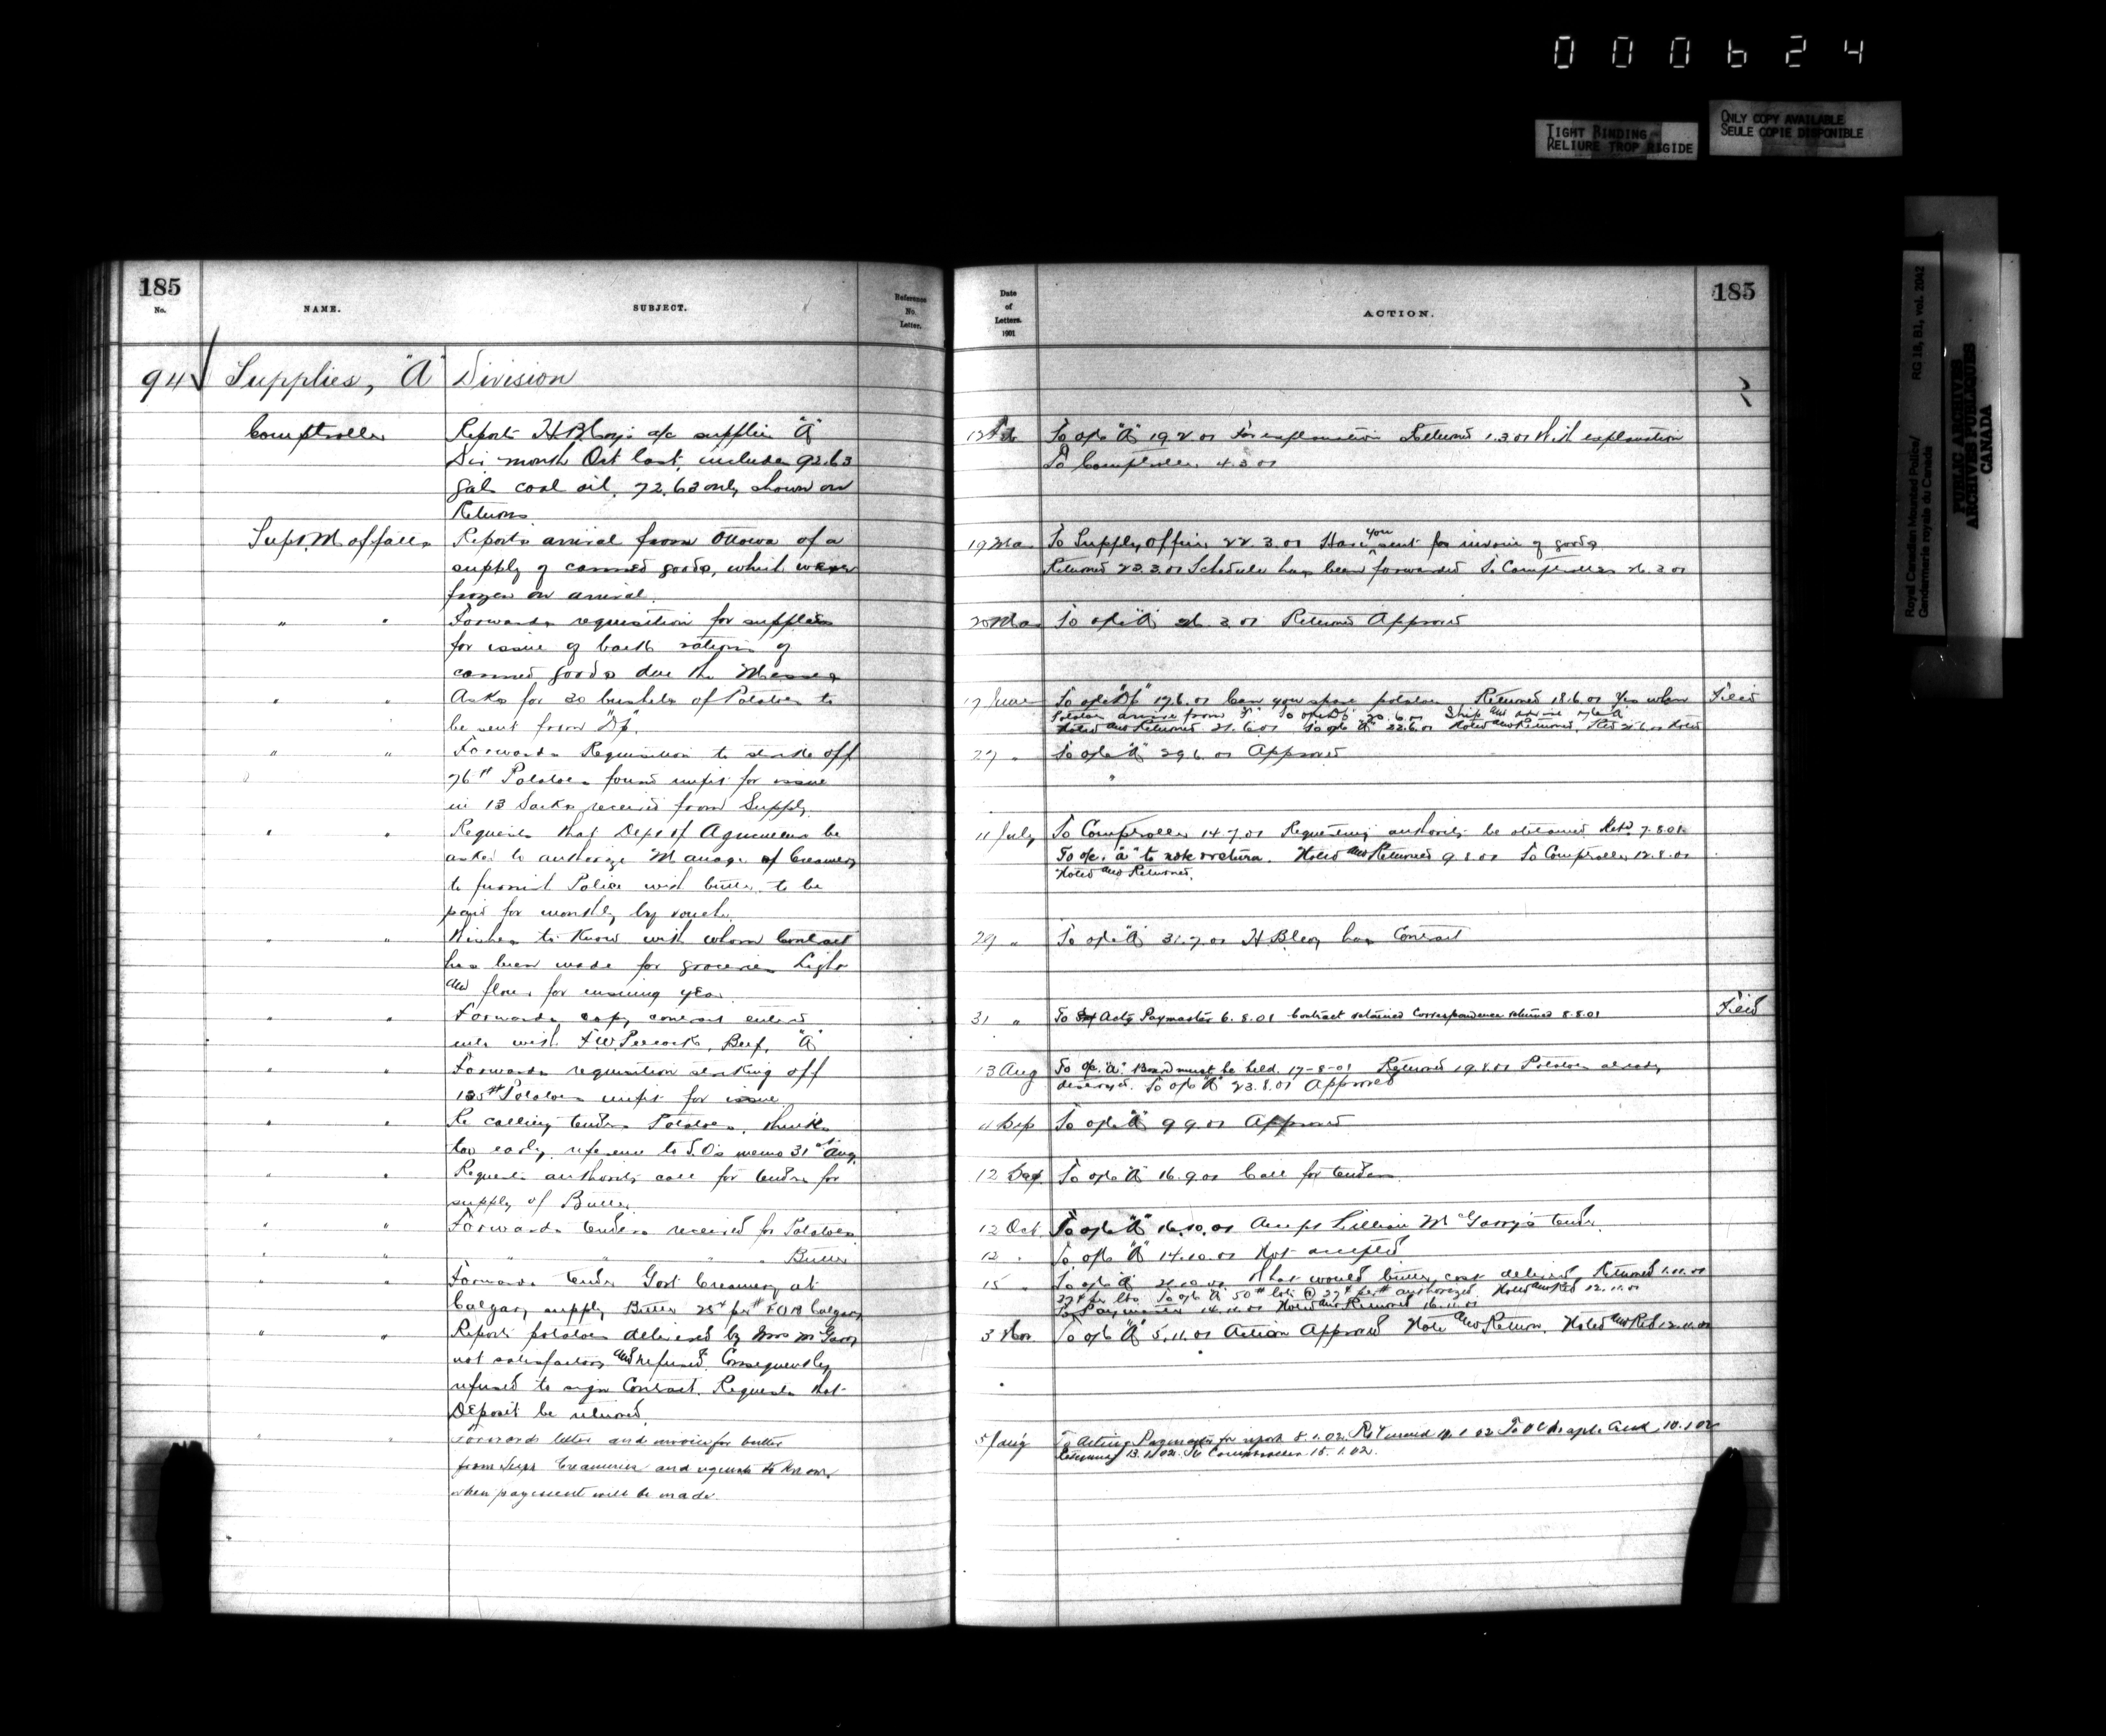 000624
TIGHT BINDING
RELIURE TROP RIGIDE
ONLY COPY AVAILABLE
SEULE COPIE DISPONIBLE
Royal Canadian Mounted Police/
Gendarmerie royale du Canada
RG 18, B1, vol. 2042
PUBLIC ARCHIVES
ARCHIVES PUBLIQUES
CANADA
185
No.
NAME.
SUBJECT.
Reference
No.
Letter.
94 Supplies, "A" Division
Comptroller
Reports H B Coy's a/c supplies "A"
Div. month Oct last, includes 92.63
gals coal oil, 72.63 only shown on
Returns
Supt. M
Reports arrival from Ottawa of a
supply of canned goods, which were
frozen on arrival.
" " Forwards requisition for supplies
for issue of back rations of
canned goods due the Messes
" " Asks for 30 bushels of Potatoes to
be sent from "Dp".
" " Forwards Requisition to strike off
76# Potatoes found unfit for issue
in 13 Sacks received from Supply.
" " Requests that Dept of Agriculture be
asked to authorize Manager of Creamery
to furnish Police with butter, to be
paid for monthly by voucher.
" " Wishes to Know with whom Contract
has been made for groceries Light
and flour for ensuing year.
" " Forwards copy contract entered
into with F.W. Peecock, Beef, "A"
" " Forwards requisition striking off
135# Potatoes unfit for issue
" " Re calling tenders Potatoes, thinks
too early, reference to S.O's memo 31st Aug.
" " Requests authority call for tenders for
supply of Butter.
" " Forwards tenders received for Potatoes
" " " " " " Butter
" " Forwards tender Govt Creamery at
Calgary supply Butter 25¢ per # FOB Calgary
" " Reports potatoes delivered by Mrs McGarry
not satisfactory and refused. Consequently
refused to sign Contract. Requests that
Deposit be returned.
" " Forwards letter and invoice for butter
from Supt Creameries and requests to know
when payment will be made.
Date
of
Letters.
1901
ACTION.
185
12 Feb To o/c "A" 19.2.01 for explanation Returned 1.3.01 With explanation
To Comptroller 4.3.01
19 Mar To Supply Officer 22.3.01 Have you sent for invoice of goods
Returned 23.3.01 Schedule has been forwarded To Comptroller 26.3.01
20 Mar To o/c "A" 26.3.01 Returned Approved
17 June To o/c "Dp" 17.6.01 Can you spare potatoes Returned 18.6.01 Yes when Filed
Potatoes arrive from "F" To o/c "Dp" 20.6.01 Ship and advise o/c "A"
Noted and Returned 21.6.01 To o/c "A" 22.6.01 Noted and Returned.
27 " To o/c "A" 29.6.01 Approved
11 July To Comptroller 14.7.01 Requesting authority be obtained Retd 7.8.01
To o/c. "A" to note & return. Noted and Returned 9.8.01 To Comptroller 12.8.01
Noted and Returned.
29 " To o/c "A" 31.7.01 H B Coy has Contract
31 " To Actg Paymaster 6.8.01 Contract retained Correspondence returned 8.8.01 Filed
13 Aug To o/c. "A". Board must be held 17-8-01 Returned 19.8.01 Potatoes already
destroyed. To o/c "A" 23.8.01 Approved
4 Sep To o/c "A" 9.9.01 Approved
12 Sept To o/c "A" 16.9.01 Call for tenders.
12 Oct To o/c "A" 16.10.01 Accept Lillian McGarry's tender.
12 " To o/c "A" 14.10.01 Not accepted
15 " To o/c "A" 21.10.01 What would butter cost delivered Returned 1.11.01
27¢ per lb. To o/c "A" 50# lots @ 27¢ per # authorized. Noted and Retd 12.11.01
To Paymaster 14.11.01 Noted and Returned 16.11.01
3 Nov To o/c "A" 5.11.01 Action Approved Note and Return. Noted and Retd 12.11.01
5 Jany To Acting Paymaster for report 8.1.02. Returned 10.1.02
Returned 13.1.02. To Comptroller 15.1.02.